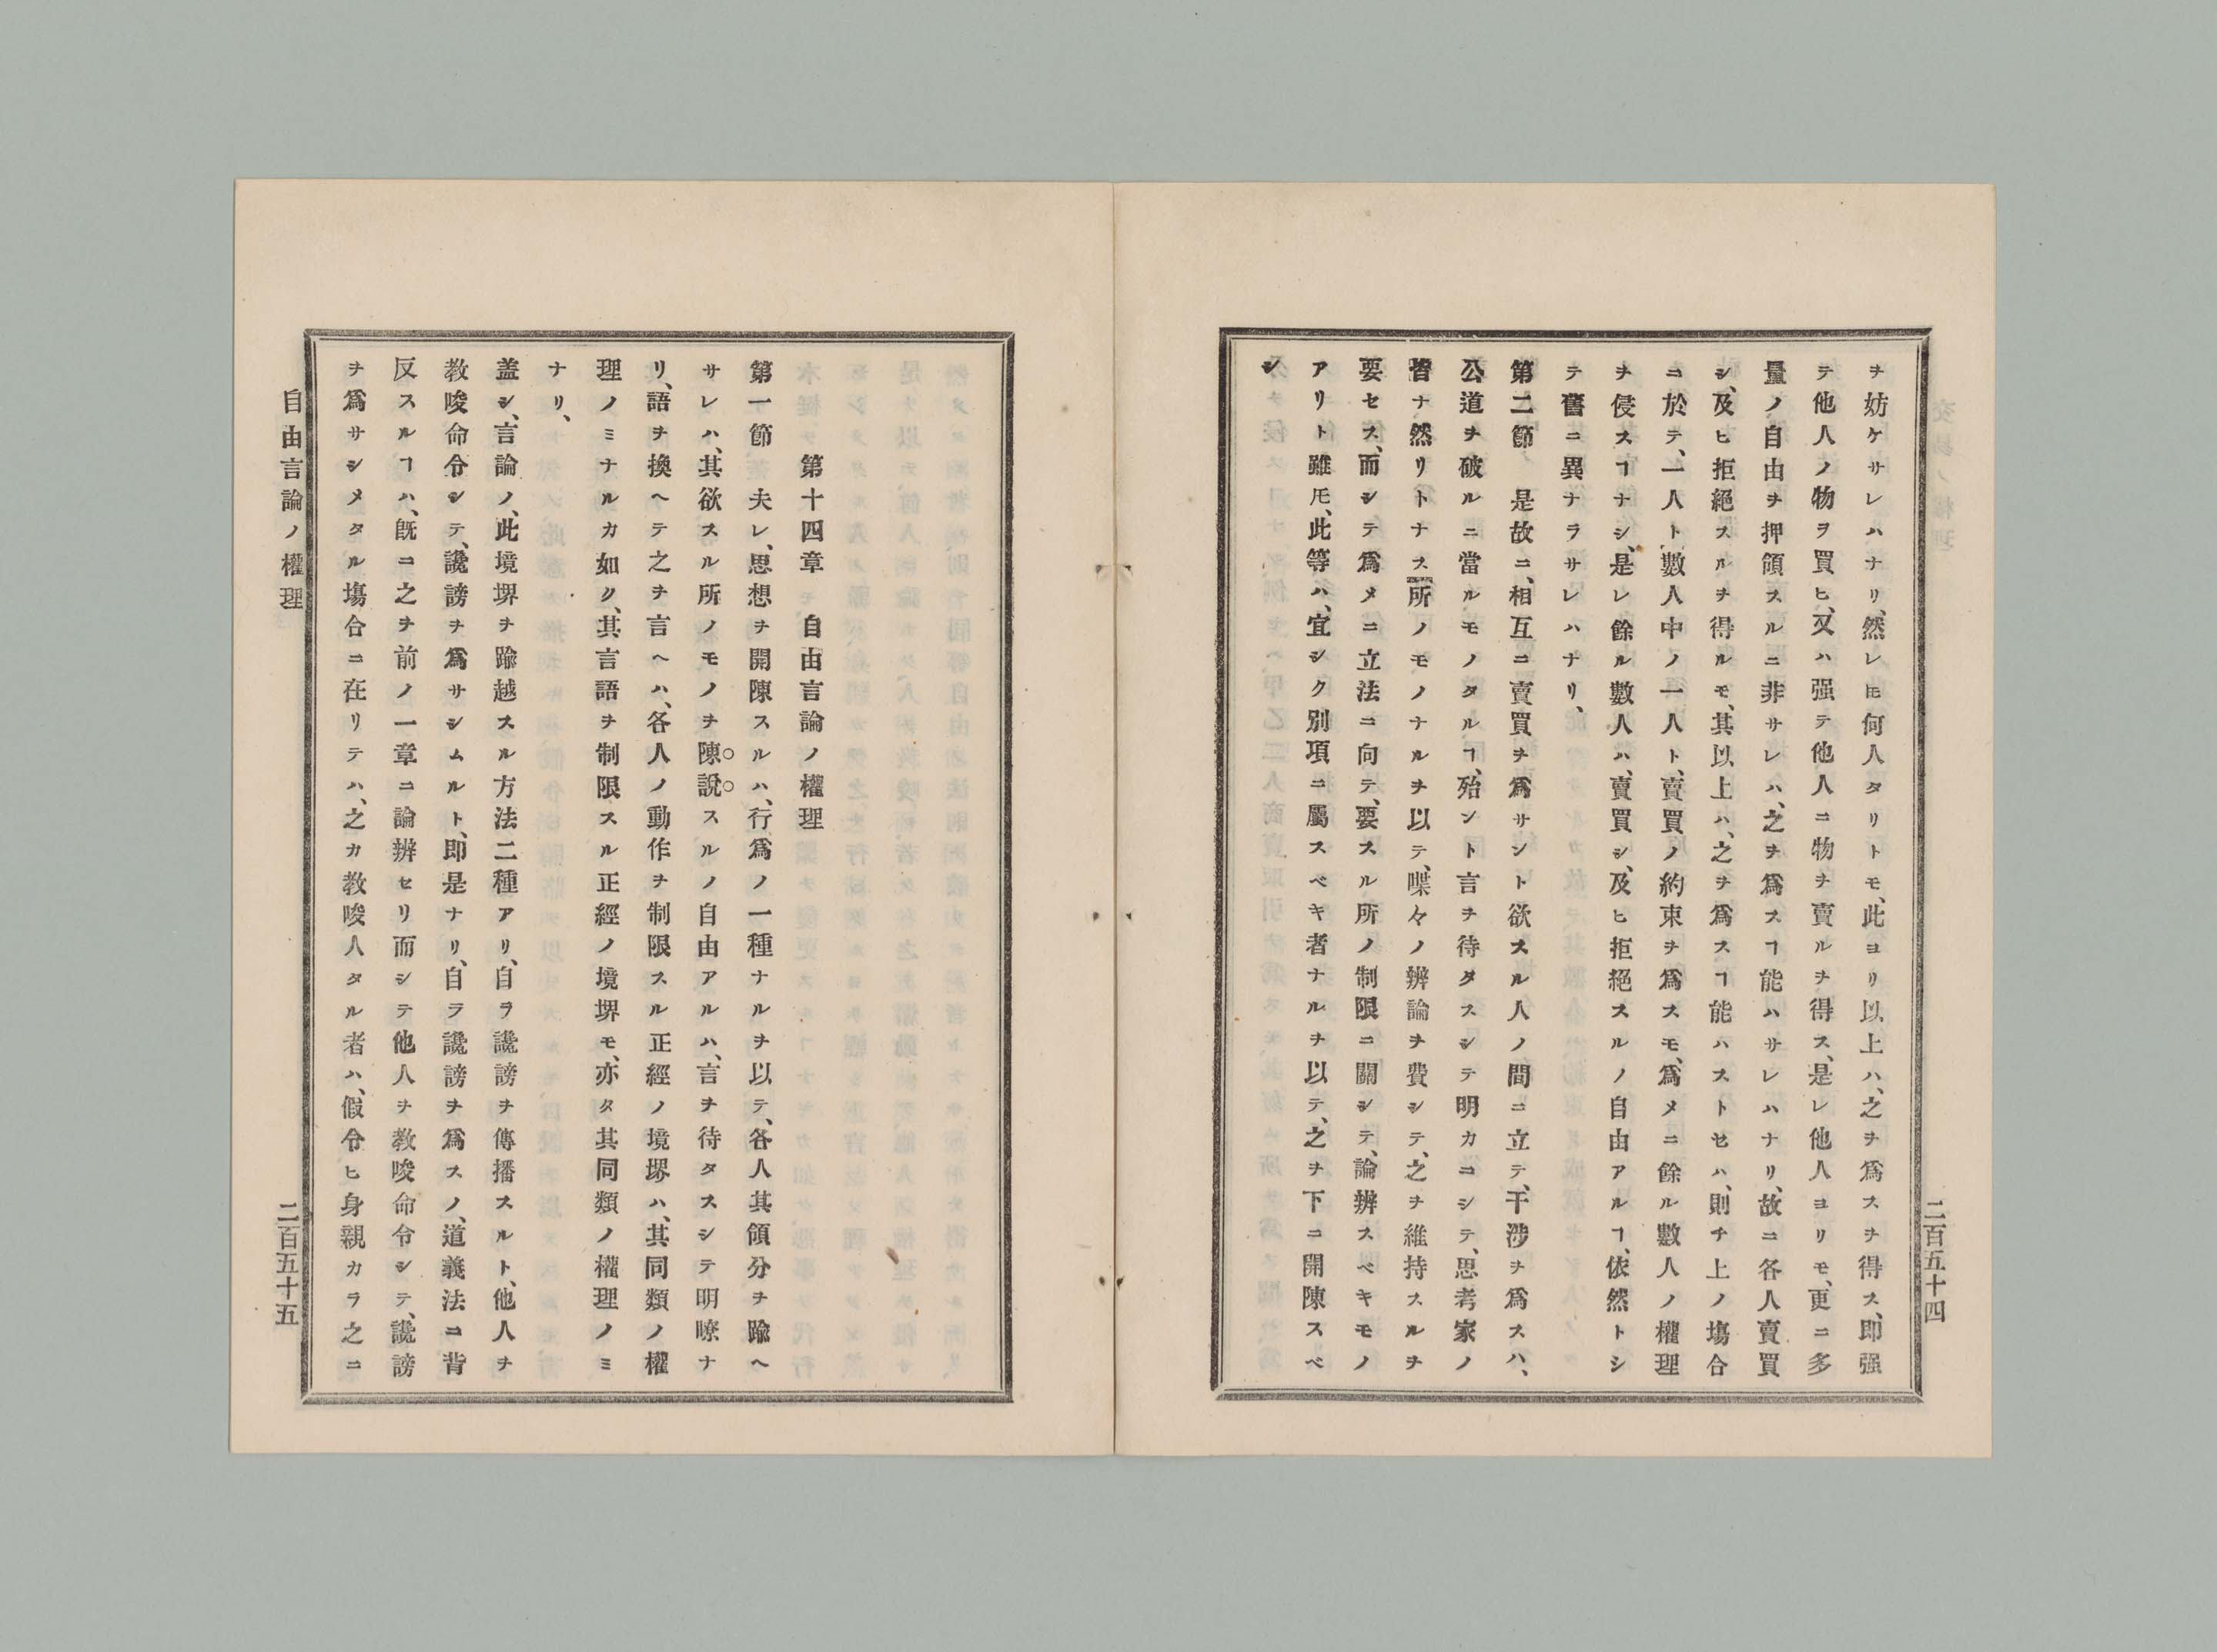 ヲ妨ケサレハナリ、然レ𪜈何人タリトモ、此ヨリ以上ハ、之ヲ爲スヲ得ス、即强
テ他人ノ物ヲ買ヒ、又ハ强テ他人ニ物ヲ賣ルヲ得ス、是レ他人ヨリモ、更ニ多
量ノ自由ヲ押領スルニ非サレハ、之ヲ爲スヿ能ハサレハナリ、故ニ各人賣買
シ、及ヒ拒絕スルヲ得ルモ、其以上ハ、之ヲ爲スヿ能ハストセハ、則チ上ノ塲合
ニ於テ、一人ト數人中ノ一人ト、賣買ノ約束ヲ爲スモ、爲メニ餘ル數人ノ權理
ヲ侵スヿナシ、是レ餘ル數人ハ、賣買シ、及ヒ拒絕スルノ自由アルヿ、依然トシ
テ舊ニ異ナラサレハナリ、
第二節　是故ニ、相互ニ賣買ヲ爲サント欲スル人ノ間ニ立テ、干涉ヲ爲スハ、
公道ヲ破ルニ當ルモノタルヿ、殆ント言ヲ待タスシテ明カニシテ、思考家ノ
皆ナ然リトナス所ノモノナルヲ以テ、喋々ノ辨論ヲ費シテ、之ヲ維持スルヲ
要セス、而シテ爲メニ立法ニ向テ、要スル所ノ制限ニ關シテ、論辨スベキモノ
アリト雖𪜈、此等ハ、宜シク別項ニ屬スベキ者ナルヲ以テ、之ヲ下ニ開陳スベ
シ
二百五十四
第十四章　自由言論ノ權理
第一節　夫レ、思想ヲ開陳スルハ、行爲ノ一種ナルヲ以テ、各人其領分ヲ踰ヘ
サレハ、其欲スル所ノモノヲ陳說スルノ自由アルハ、言ヲ待タスシテ明瞭ナ
リ、語ヲ換ヘテ之ヲ言ヘハ、各人ノ動作ヲ制限スル正經ノ境堺ハ、其同類ノ權
理ノミナルカ如ク、其言語ヲ制限スル正經ノ境堺モ、亦タ其同類ノ權理ノミ
ナリ、
盖シ、言論ノ、此境堺ヲ踰越スル方法二種アリ、自ラ讒謗ヲ傳播スルト、他人ヲ
敎唆命令シテ、讒謗ヲ爲サシムルト、即是ナリ、自ラ讒謗ヲ爲スノ、道義法ニ背
反スルヿハ、旣ニ之ヲ前ノ一章ニ論辨セリ而シテ他人ヲ敎唆命令シテ、讒謗
ヲ爲サシメタル塲合ニ在リテハ、之カ敎唆人タル者ハ、假令ヒ身親カラ之ニ
自由言論ノ權理
二百五十五